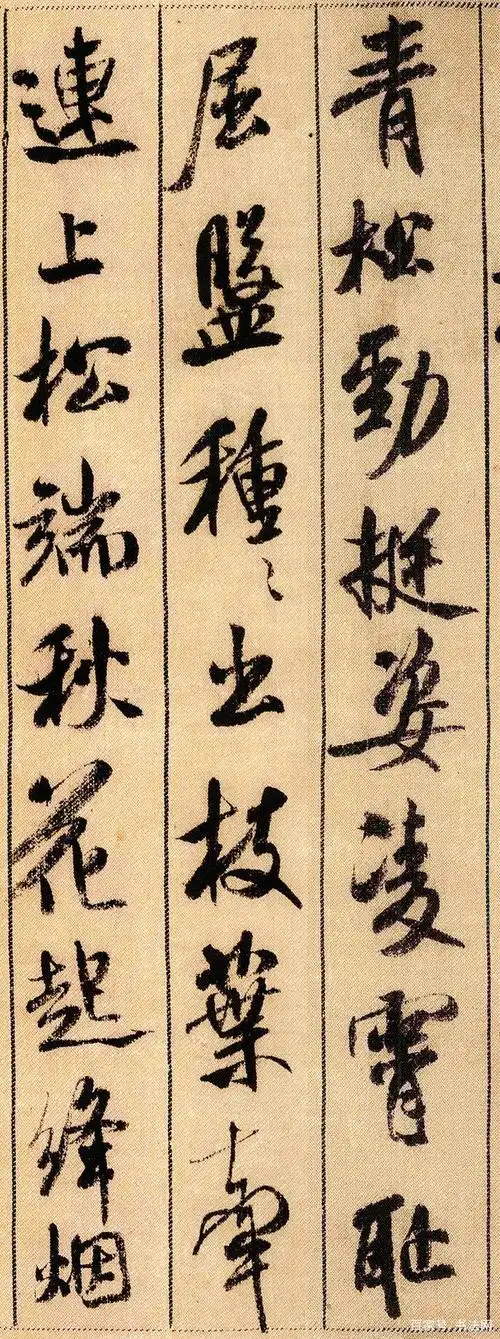 青松勁挺姿凌霄恥
屈盤種〻出枝葉牽
連上松端秋花起絳烟
百家号/书法网